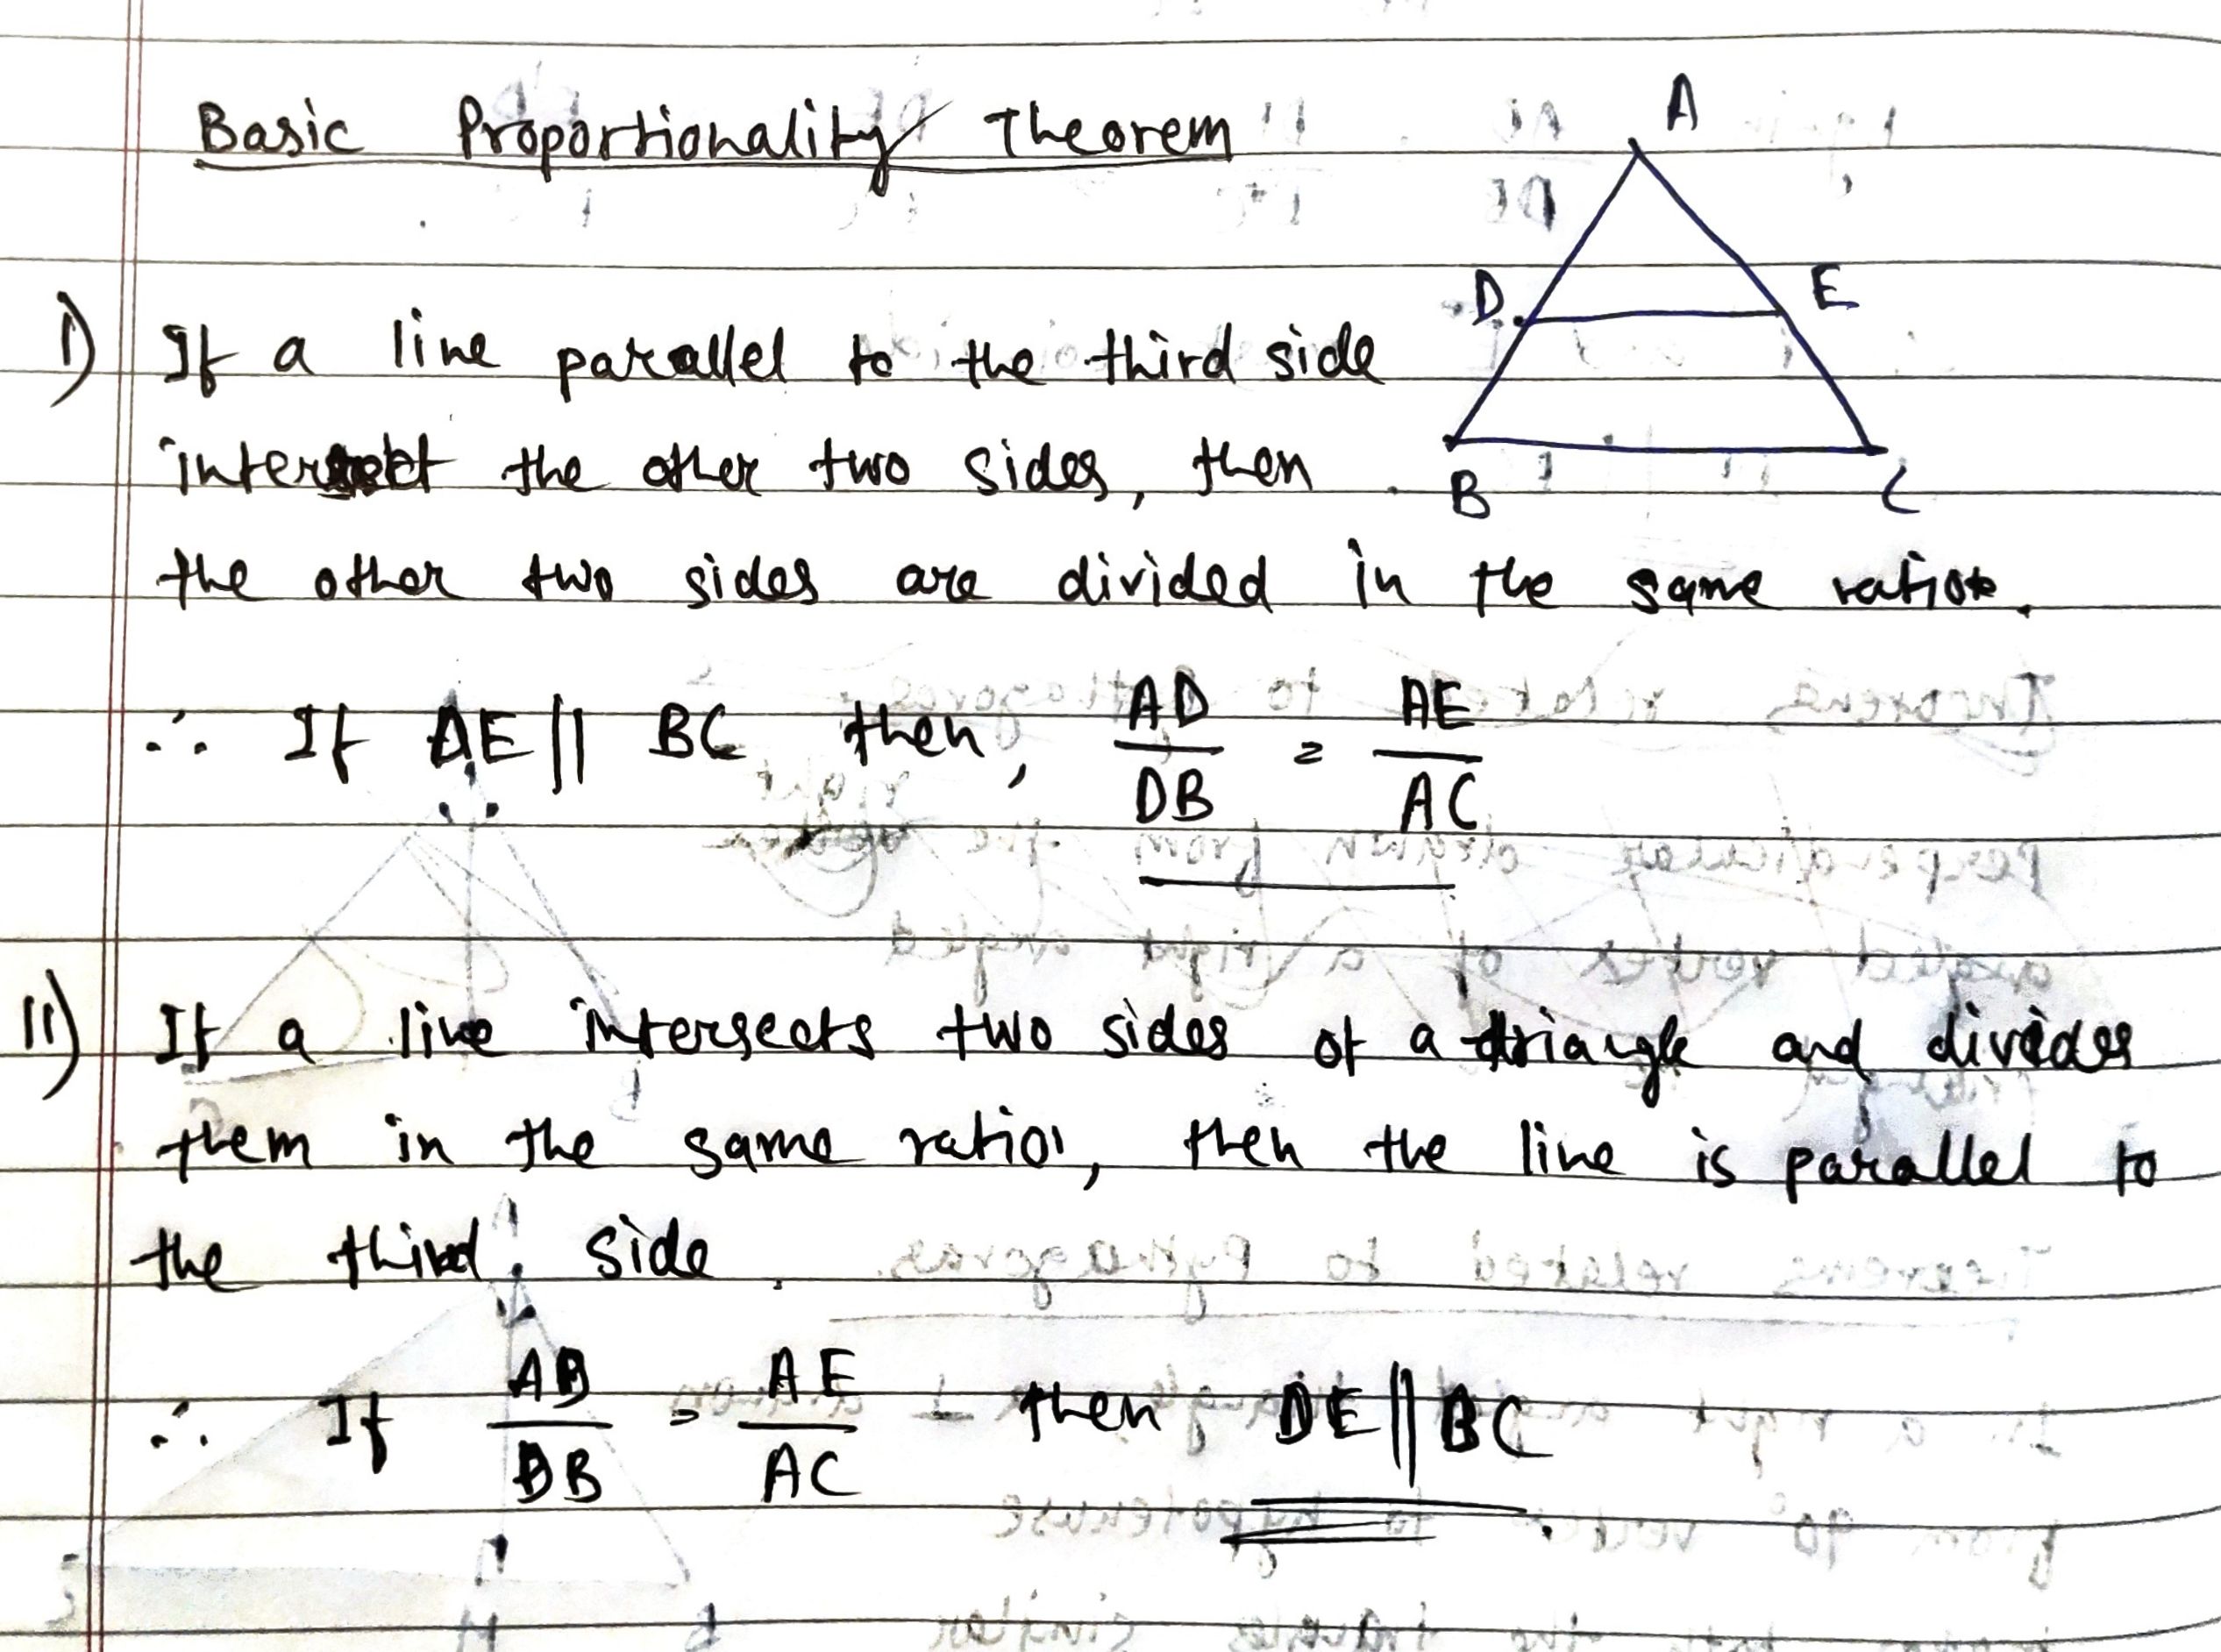 Basic Proportionality Theorem
A
D
E
B
C
I) If a line parallel to the third side
intersect the other two sides, then
the other two sides are divided in the same ratio.
∴ If DE || BC then, AD/DB = AE/AC
II) If a line intersects two sides of a triangle and divides
them in the same ratio, then the line is parallel to
the third side.
∴ If AB/BB = AE/AC then DE || BC